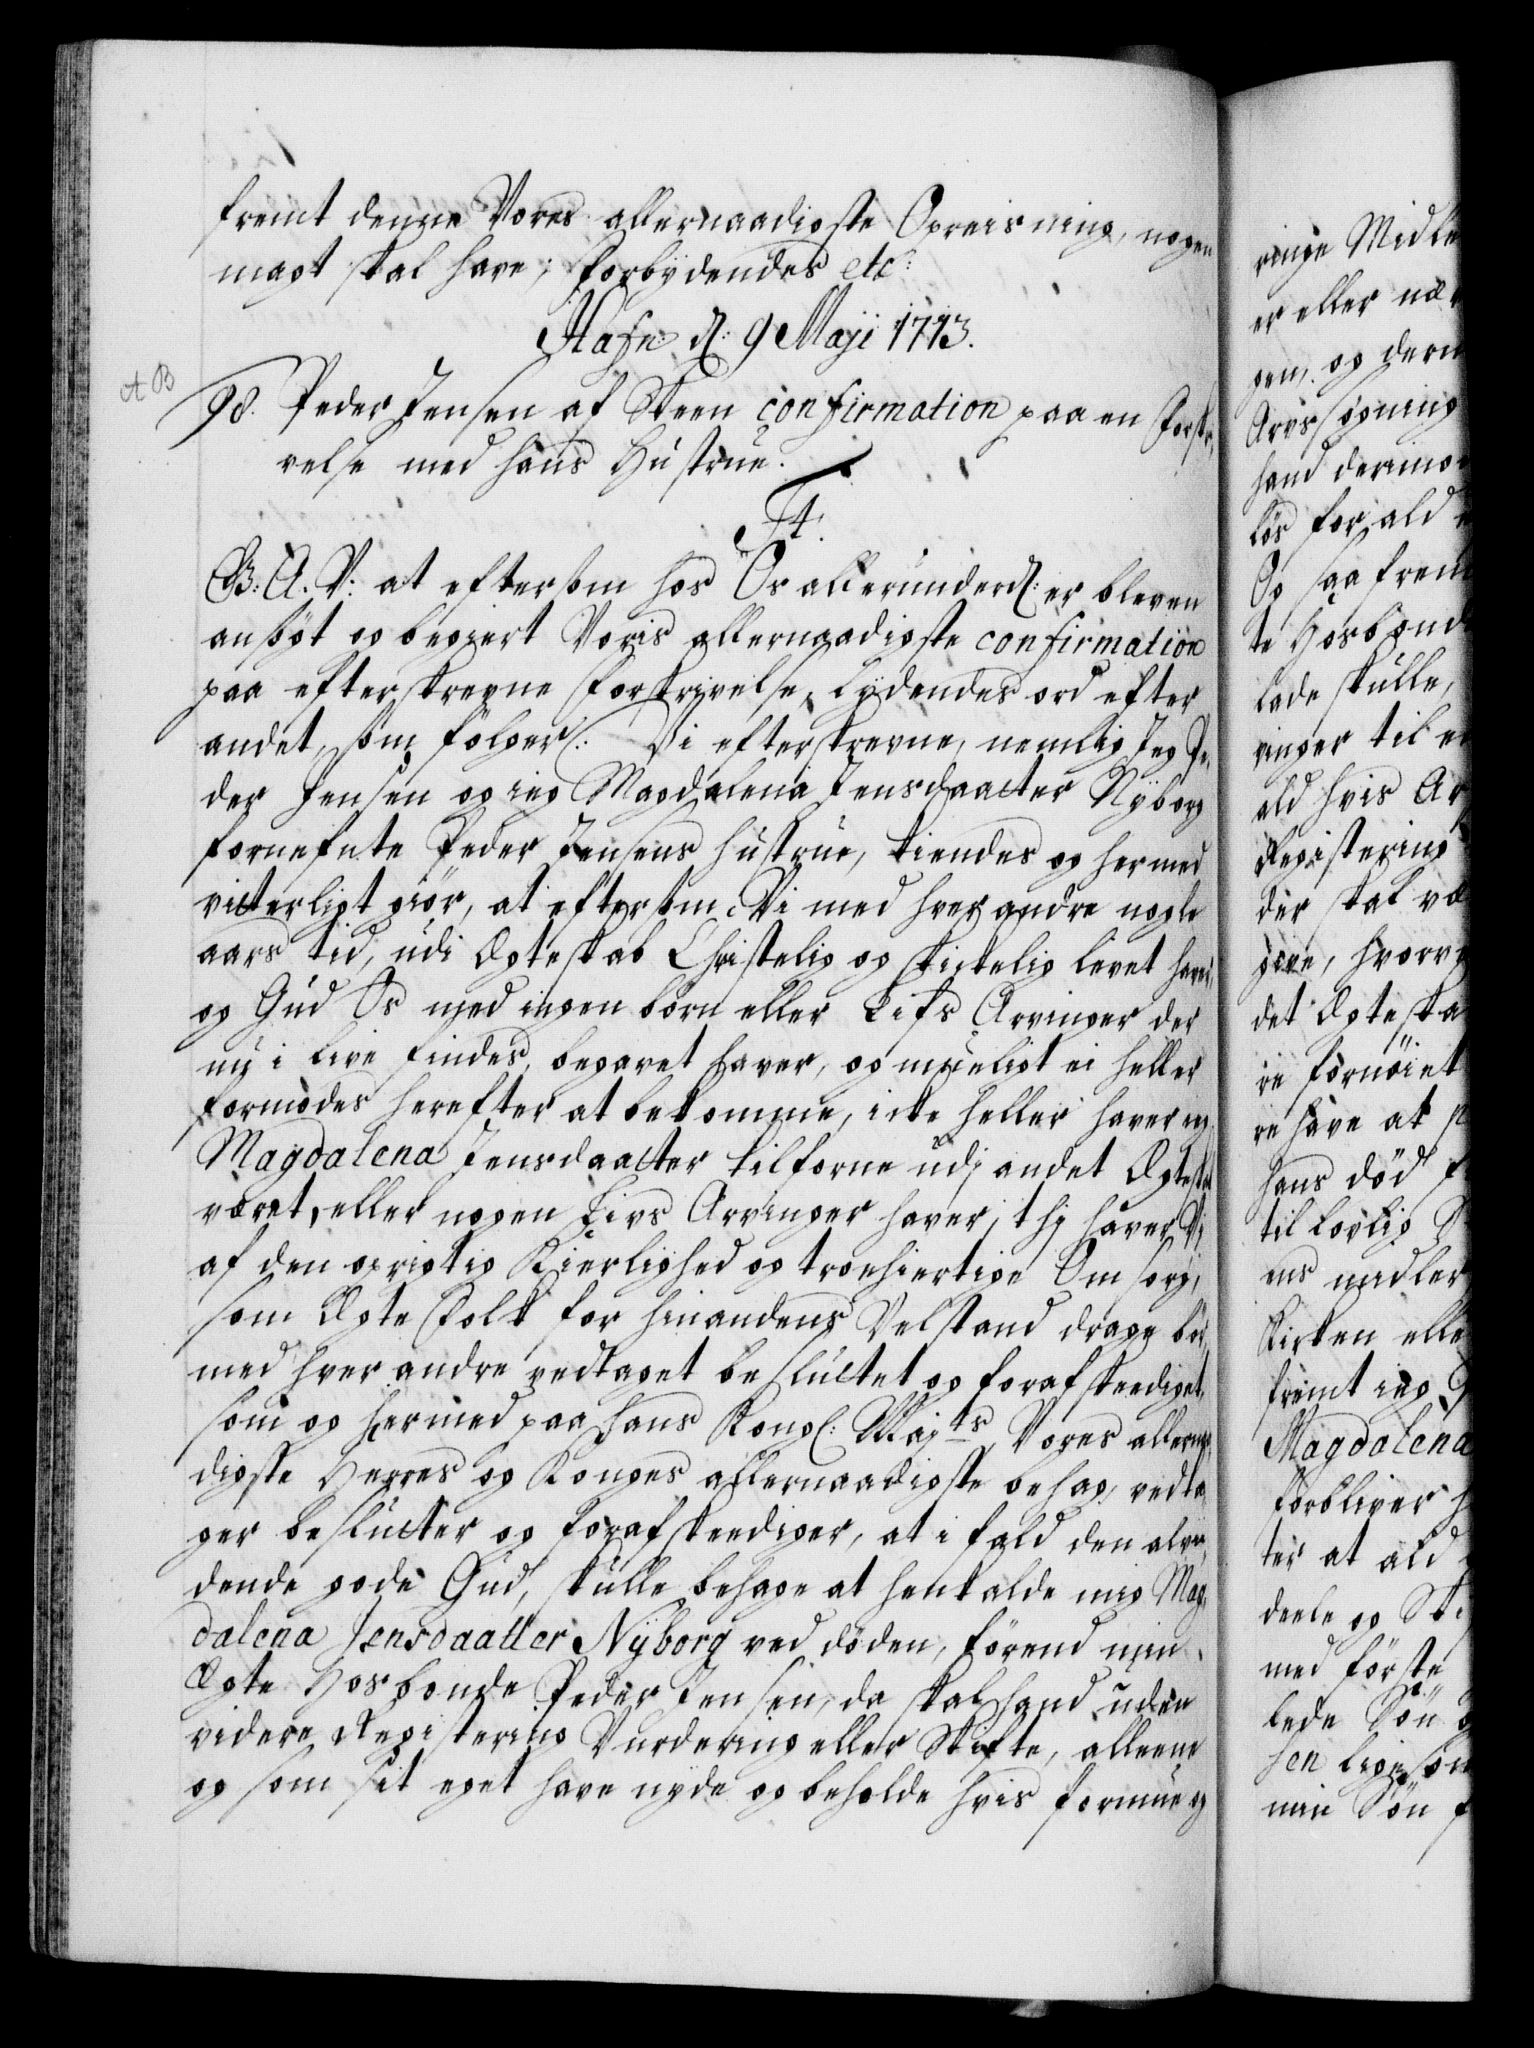 fremt denne Vores allernaadigste Opreisning, nogen
magt skal have; Forbydendes etc:
Hafn: d: 9 Maji 1713.
A B
98. Peder Jensen af Steen confirmation paa en Forskr,
velse med hans Hustrue.
F4.
G: A. V: at eftersom hos Os allerunderd: er bleven
ansögt og begiert Voris allernaadigste confirmation
paa efterskrevne Forskrivelse, Lydendes ord efter
andet, som fölger: Vi efterskrevne, nemlig Jeg Pe,
der Jensen og ieg Magdalena Jensdaatter Nyborg
fornefnte Peder Jensens hustrue, kiendes og hermed
vitterligt giör, at eftersom Vi med hver andre nogle
aars tid, udi Ægteskab Christelig og skikkelig levet haver,
og Gud Os med ingen börn eller Lifs Arvinger der
nu i live findes, begavet haver, og mueligt ei heller
formodes herefter at bekomme, icke heller haver ieg
Magdalena Jensdaatter tilforne udi andet Ægteska
været, eller nogen Livs Arvinger haver, thi haver Vi
af den oprigtig Kierlighed og troehiertige Omsorg,
som Ægte Folk for hinandens Velstand drage bör,
med hver andre vedtaget besluttet og forafskeediget,
som og hermed paa hans Kongl: Majts Vores allerna,
digste Herres og Konges allernaadigste behag, vedta
ger beslutter og forafskeediger, at i fald den alvi,
dende gode Gud, skulle behage at henkalde mig Mag,
dalena Jensdaatter Nÿborg ved döden, förend min
Ægte Hosbonde Peder Jensen, da skal hand uden
videre Registering Vurdering eller Skifte, alleene
og som sit eget have nyde og beholde hvis formue og
ringe Midle
er eller næ
gen, og dern
Arvssögning
hand derimo
lös for ald
Og saafrem
te Hosbond
lade skulle,
ringer til
ald hvis Ar
Registering
der skal væ
give, hvorve
det Ægteska
re fornöiet
re have at
hans död
til lovlig
ens midler
Kirken elle
fremt ieg
Magdalena
forbliver
ter at ald
deele og Ski
med förste
lede Sön
sen ligesom
min Sön f